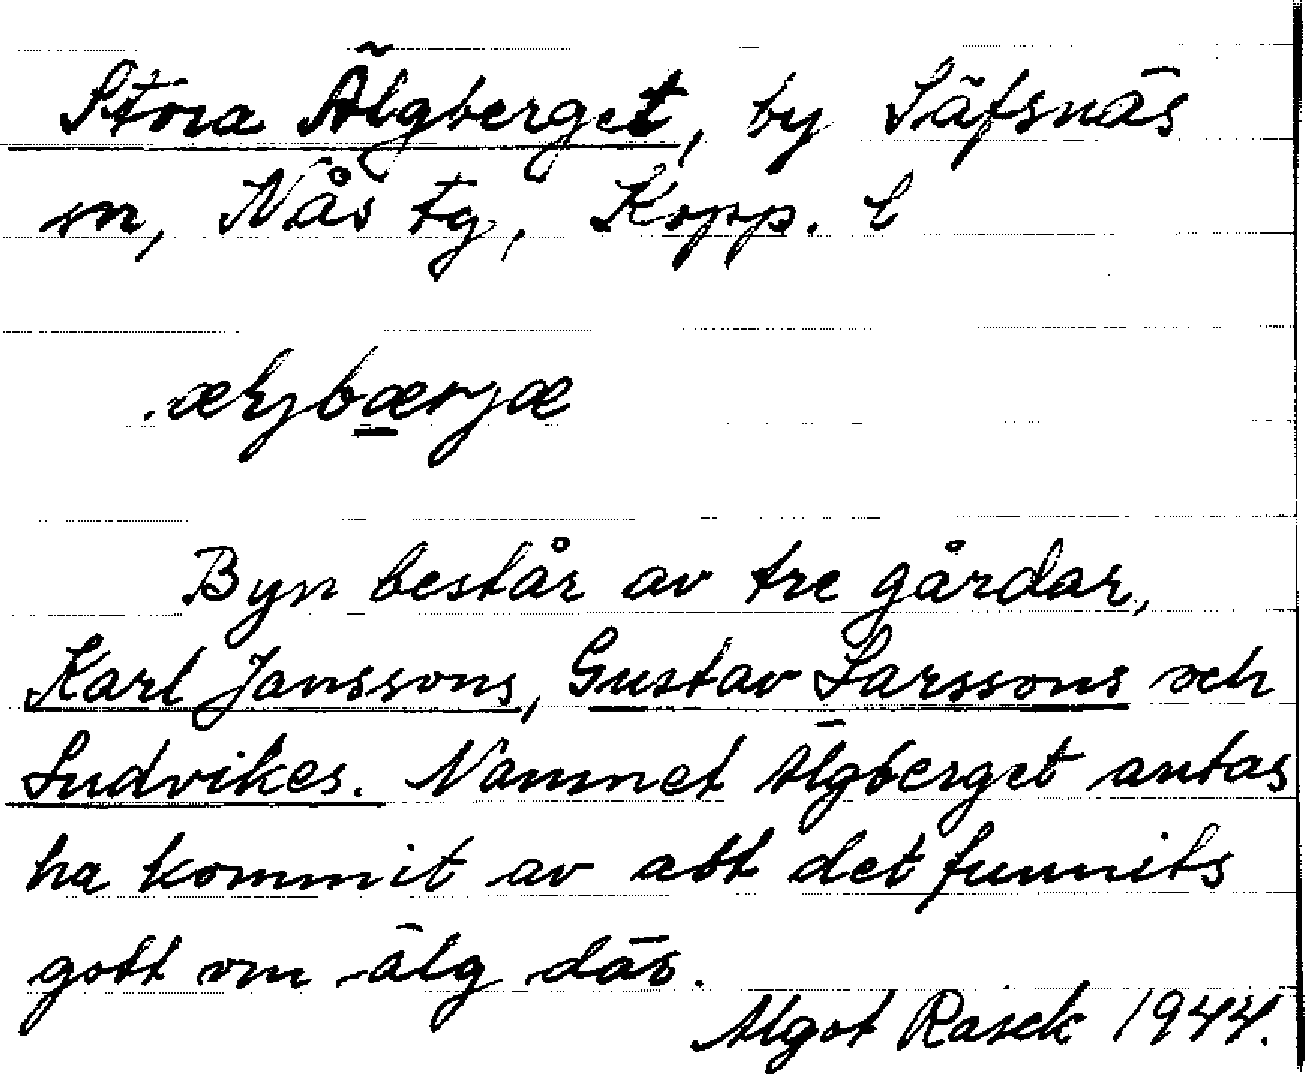 Stora Älgberget, by Säfsnäs
sn, Nås tg, Kopp. l
.æljbærjæ
Byn består av tre gårdar,
Karl Janssons, Gustav Larssons och
Ludvikes. Namnet Älgberget antas
ha kommit av att det funnits
gott om älg där.
Algot Rasck 1944.